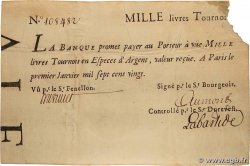 N.° 108482 MILLE livres Tournois
LA BANQUE promet payer au Porteur à vüe MILLE
livres Tournois en Especes d'Argent, valeur reçeue. A Paris le
premier Janvier mil sept cens vingt.
Signé p.r le S.r Bourgeois.
Vû p.r le S.r Fenellon.
Controllé p.r le S.r Durevest.